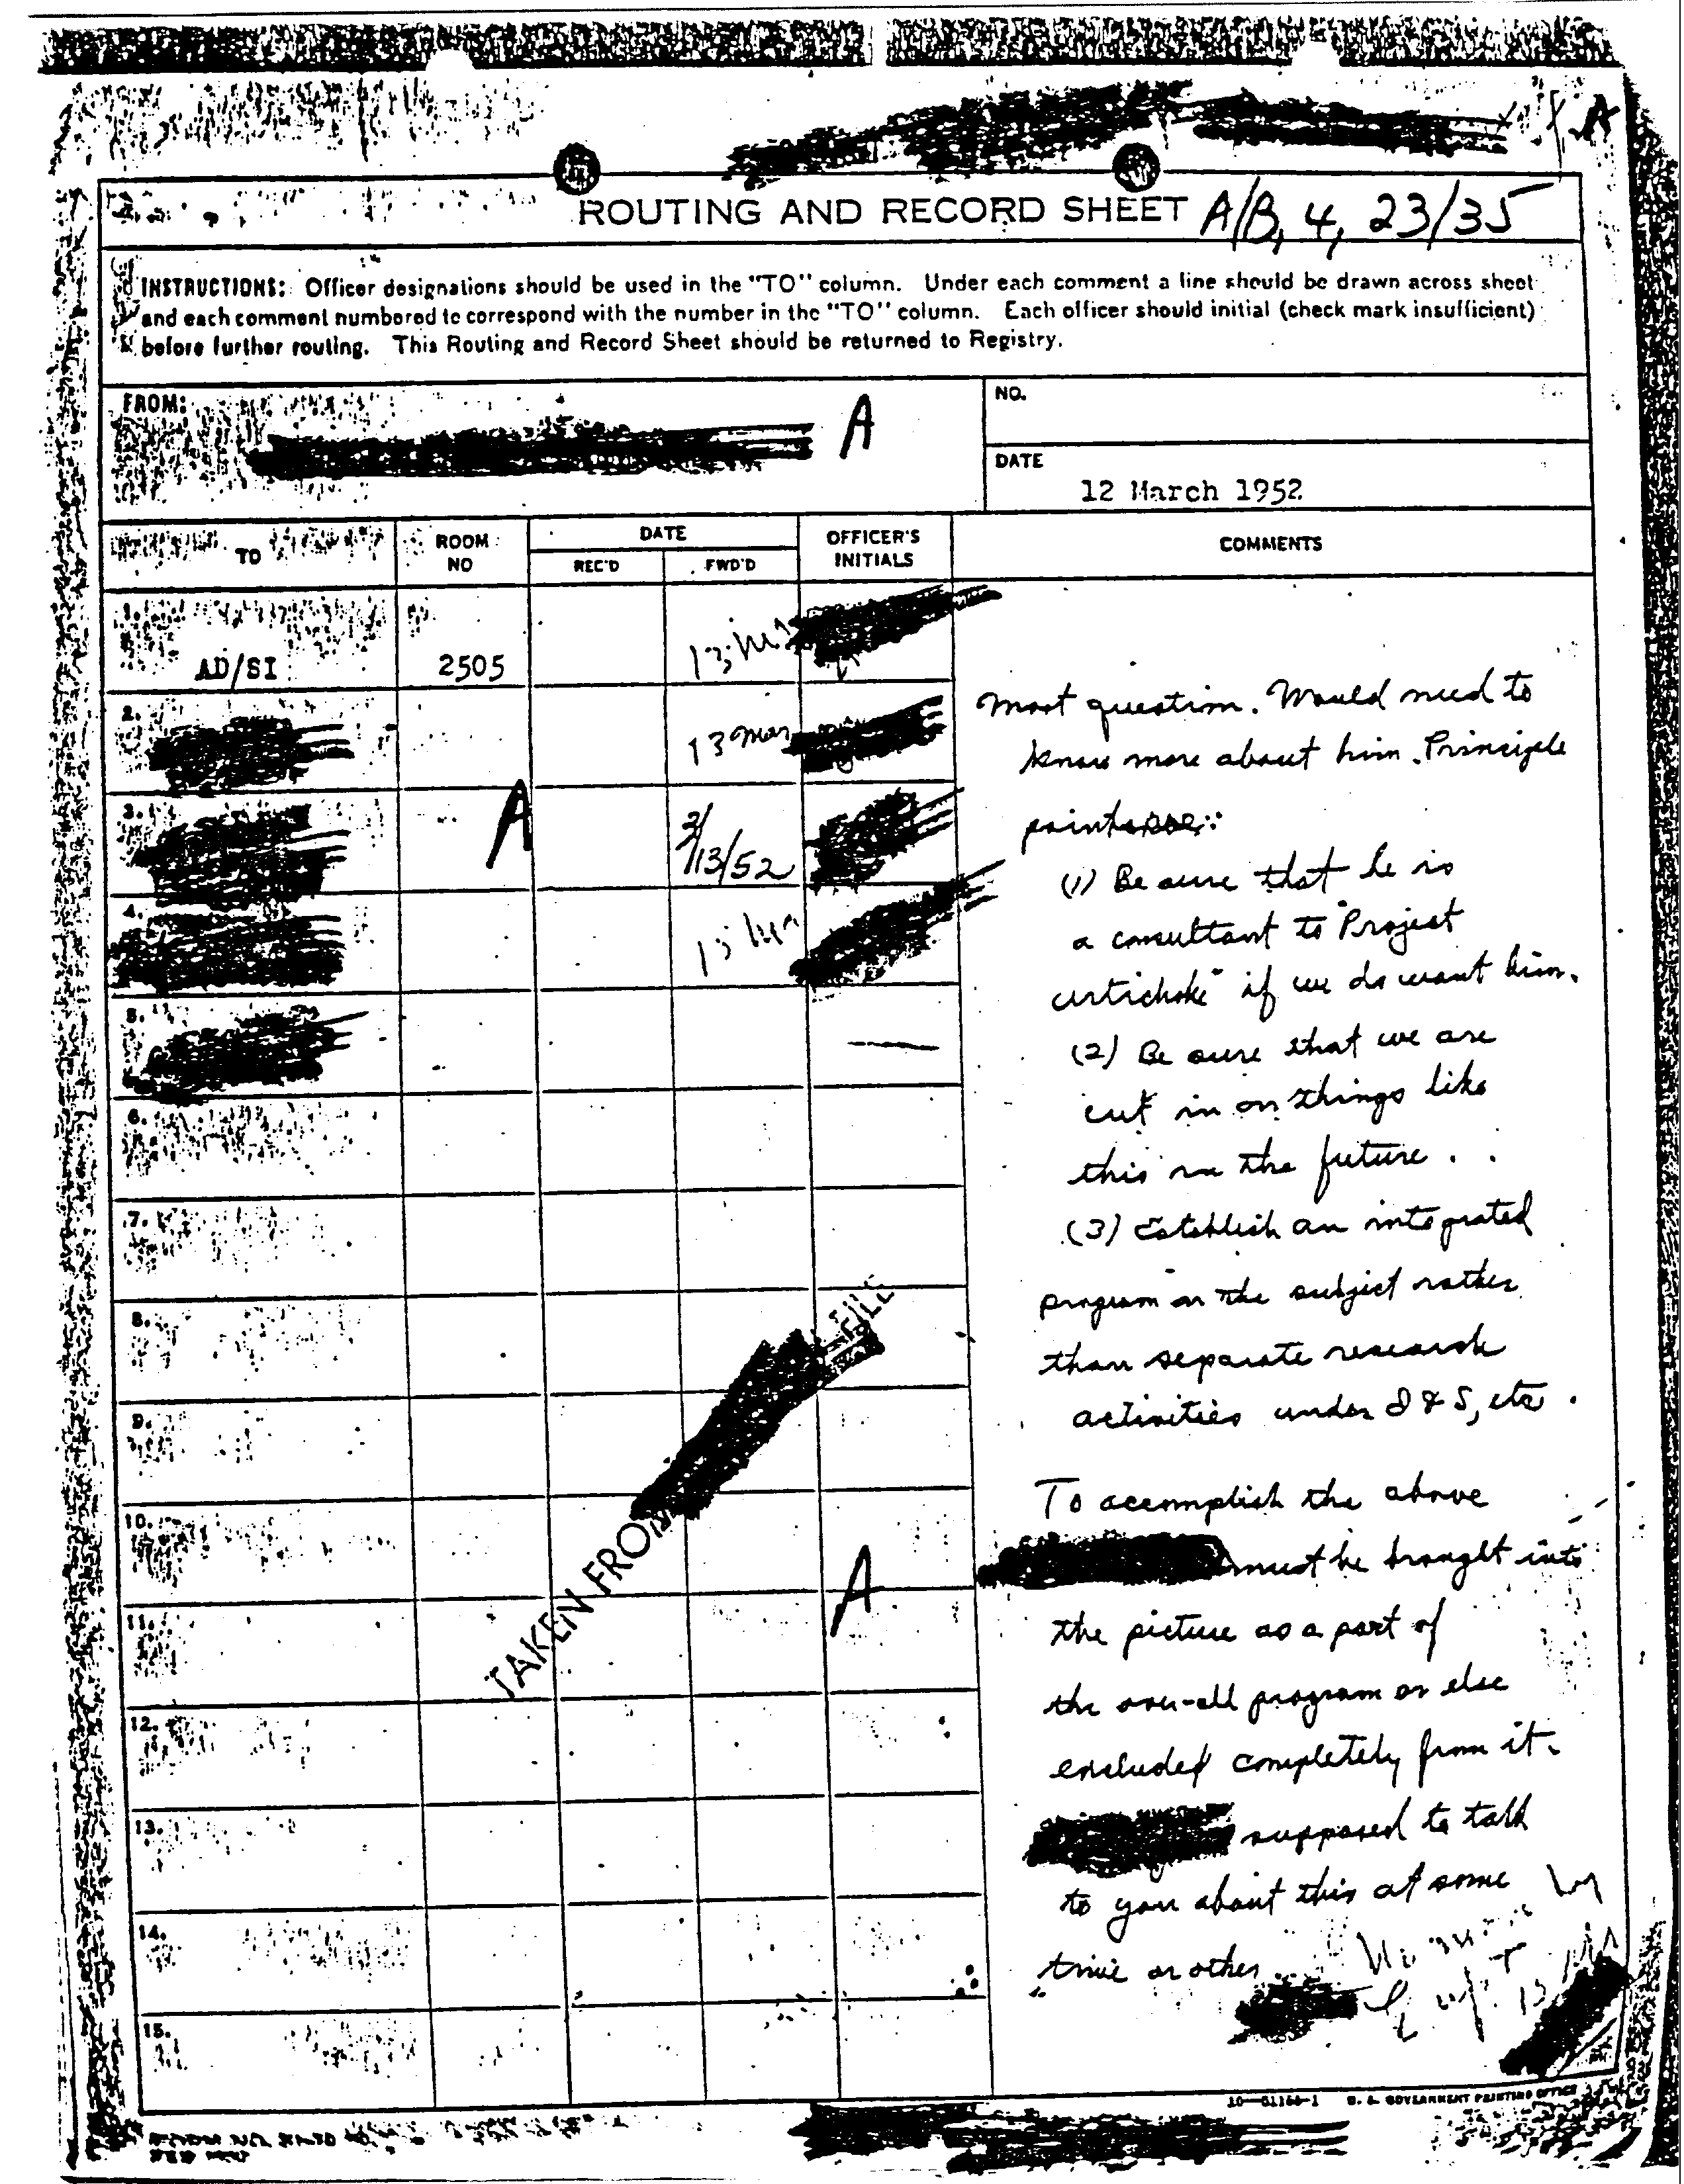 A
ROUTING AND RECORD SHEET A/B, 4, 23/35
INSTRUCTIONS: Officer designations should be used in the "TO" column. Under each comment a line should be drawn across sheet
and each comment numbered to correspond with the number in the "TO" column. Each officer should initial (check mark insufficient)
before further routing. This Routing and Record Sheet should be returned to Registry.
FROM: A
NO.
DATE
12 March 1952
TO
ROOM NO
DATE
REC'D
FWD'D
OFFICER'S INITIALS
COMMENTS
1. AD/SI 2505 13
2. 13 Mar
3. A 3/13/52
4.
5.
6.
7.
8.
9.
10.
11.
12.
13.
14.
15.
TAKEN FROM FILE
A
Moot question. Would need to
know more about him. Principle
points
(1) Be sure that he is
a consultant to "Project
artichoke" if we do want him.
(2) Be sure that we are
cut in on things like
this in the future..
(3) Establish an integrated
program on the subject rather
than separate research
activities under I & S, etc.
To accomplish the above
must be brought into
the picture as a part of
the over-all program or else
excluded completely from it.
supposed to talk
to you about this at some
time or other
U. S. GOVERNMENT PRINTING OFFICE